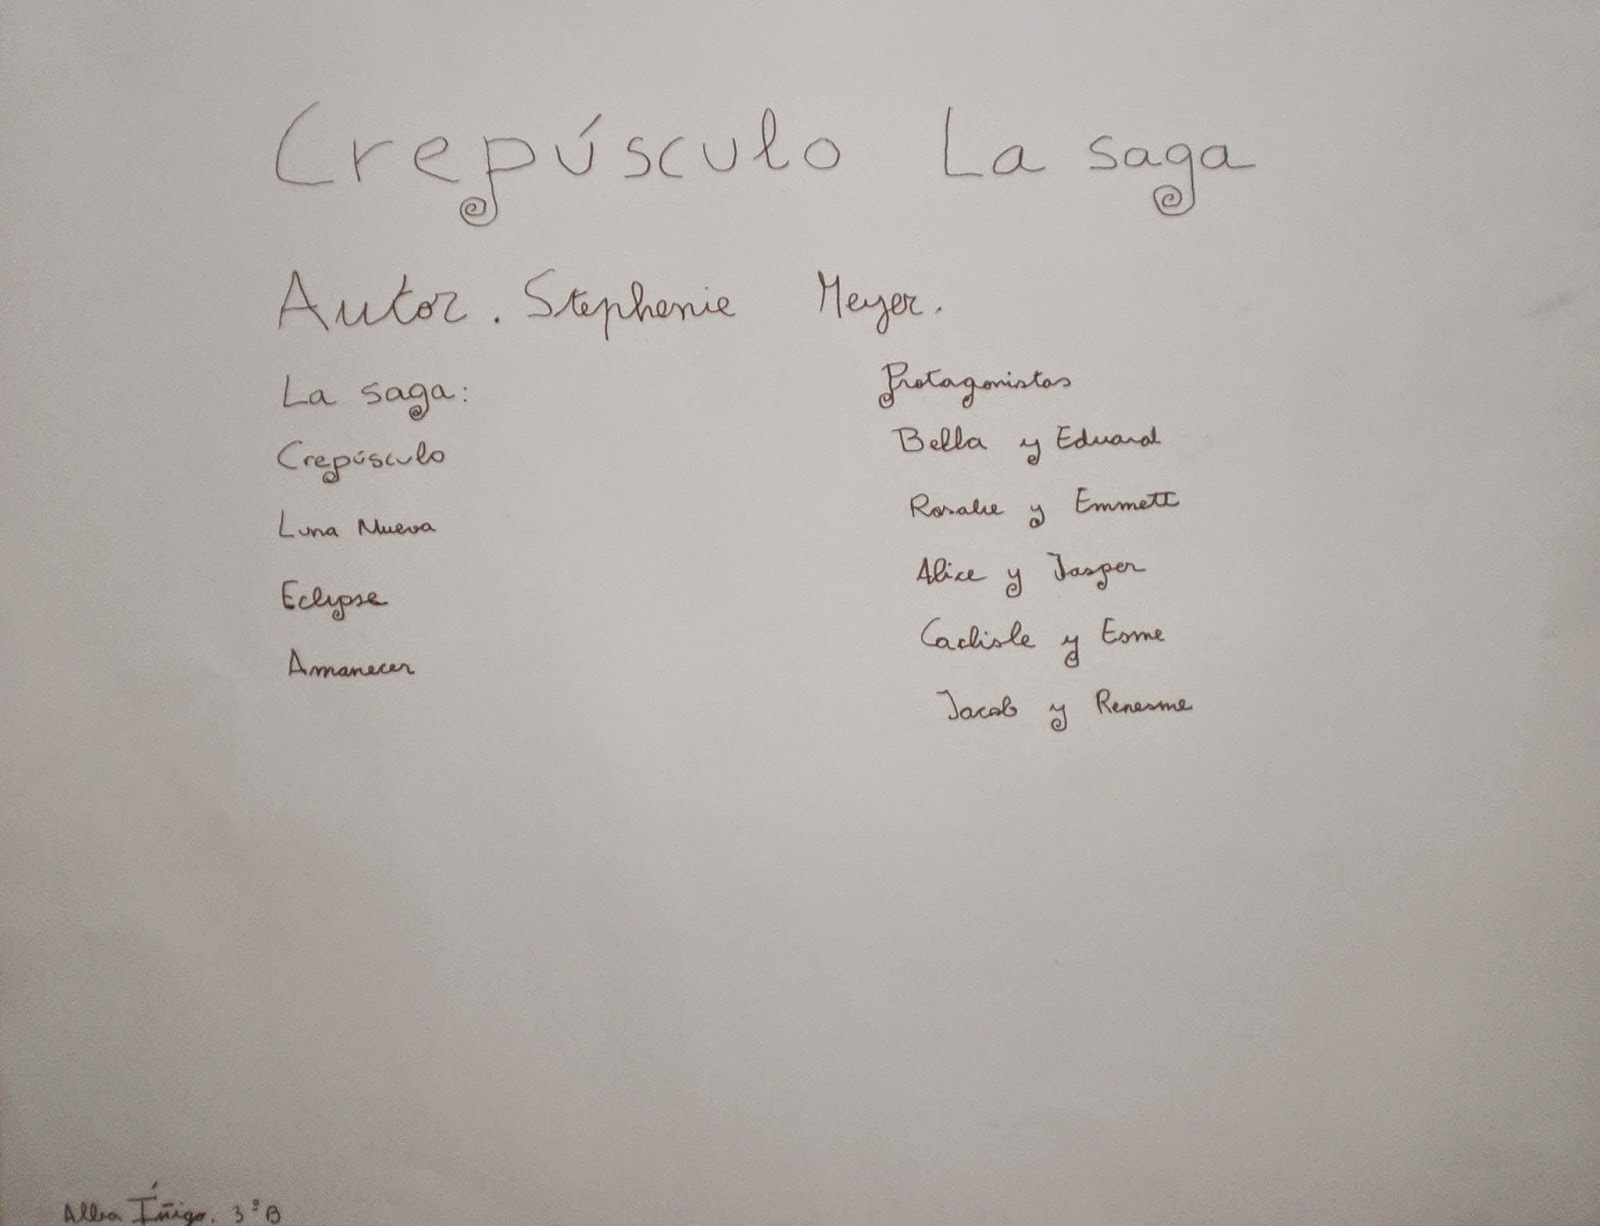 Crepúsculo La saga
Autor. Stephenie Meyer.
La saga:
Crepúsculo
Luna Nueva
Eclypse
Amanecer
Protagonistas
Bella y Eduard
Rosalie y Emmett
Alice y Jasper
Carlisle y Esme
Jacob y Renesme
Alba Íñigo. 3ºB